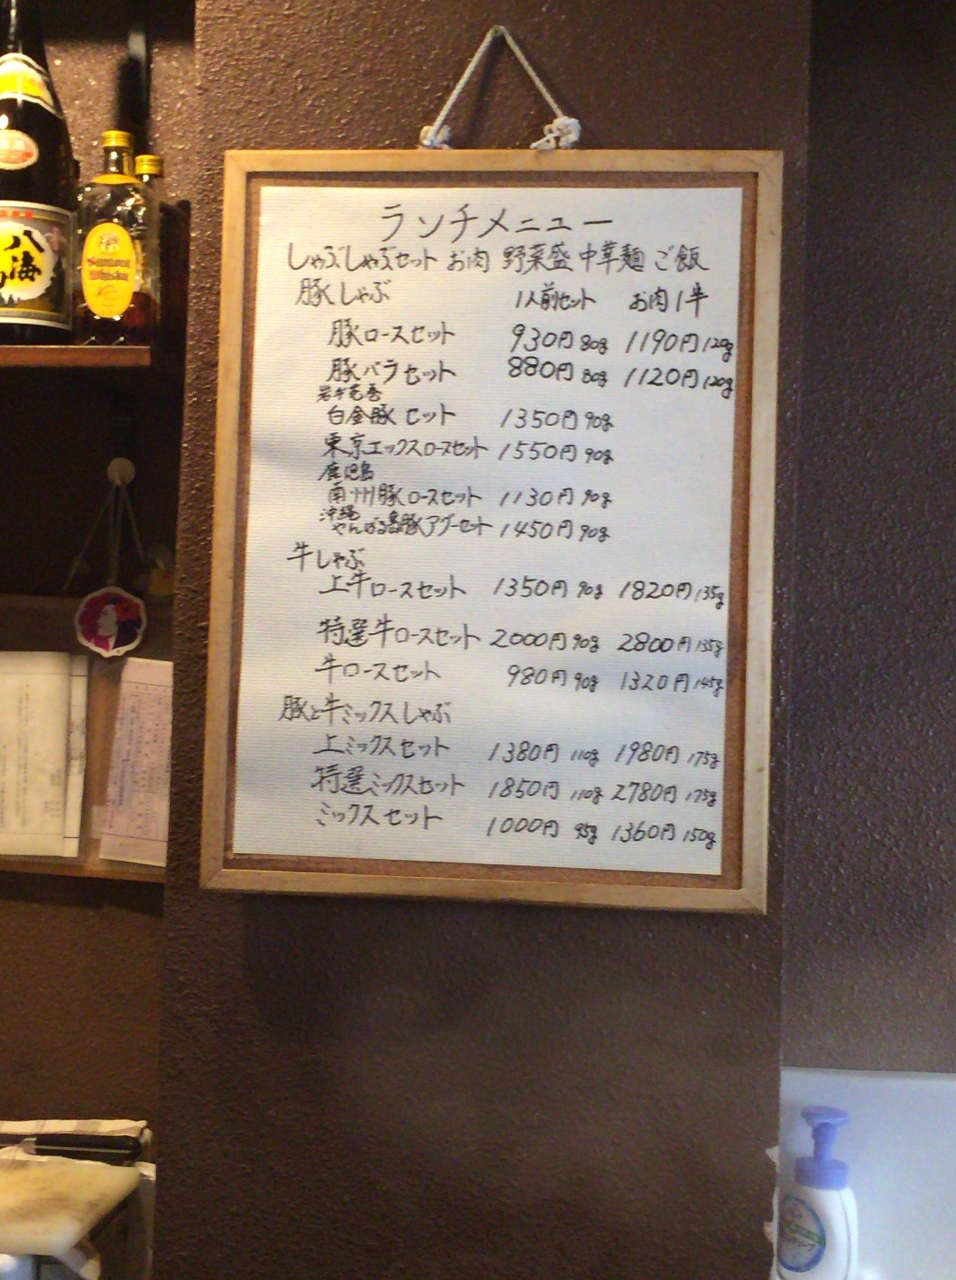 ランチメニュー
しゃぶしゃぶセット お肉 野菜盛 中華麺 ご飯
豚しゃぶ 1人前セット お肉1半
豚ロースセット 930円 80g 1190円 120g
豚バラセット 880円 80g 1120円 120g
岩手花巻
白金豚セット 1350円 90g
東京エックスロースセット 1550円 90g
鹿児島
南州豚ロースセット 1130円 90g
沖縄
やんばる島豚アグーセット 1450円 90g
牛しゃぶ
上牛ロースセット 1350円 90g 1820円 135g
特選牛ロースセット 2000円 90g 2800円 135g
牛ロースセット 980円 90g 1320円 145g
豚と牛ミックスしゃぶ
上ミックスセット 1380円 110g 1980円 175g
特選ミックスセット 1850円 110g 2780円 175g
ミックスセット 1000円 95g 1360円 150g
八海
Suntory
Whisky